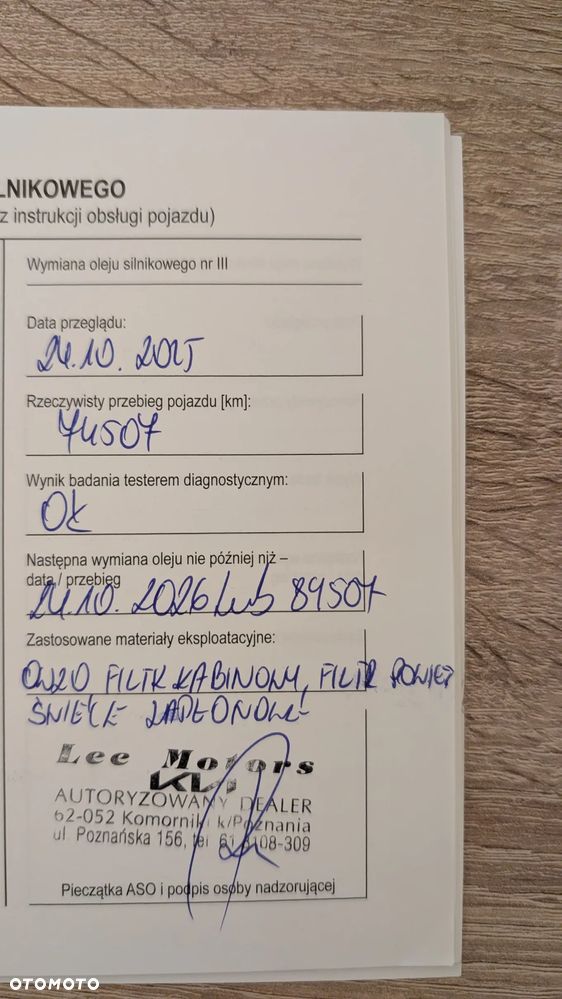 LNIKOWEGO
z instrukcji obsługi pojazdu)
Wymiana oleju silnikowego nr III
Data przeglądu:
24.10. 2025
Rzeczywisty przebieg pojazdu [km]:
74507
Wynik badania testerem diagnostycznym:
OK
Następna wymiana oleju nie później niż –
data / przebieg
24.10. 2026 lub 89507
Zastosowane materiały eksploatacyjne:
0W20 FILTR KABINOWY, FILTR POWIET
ŚWIECE ZAPŁONOWE
Lee Motors
KIA
AUTORYZOWANY DEALER
62-052 Komorniki k/Poznania
ul Poznańska 156, tel 61 8108-309
Pieczątka ASO i podpis osoby nadzorującej
OTOMOTO